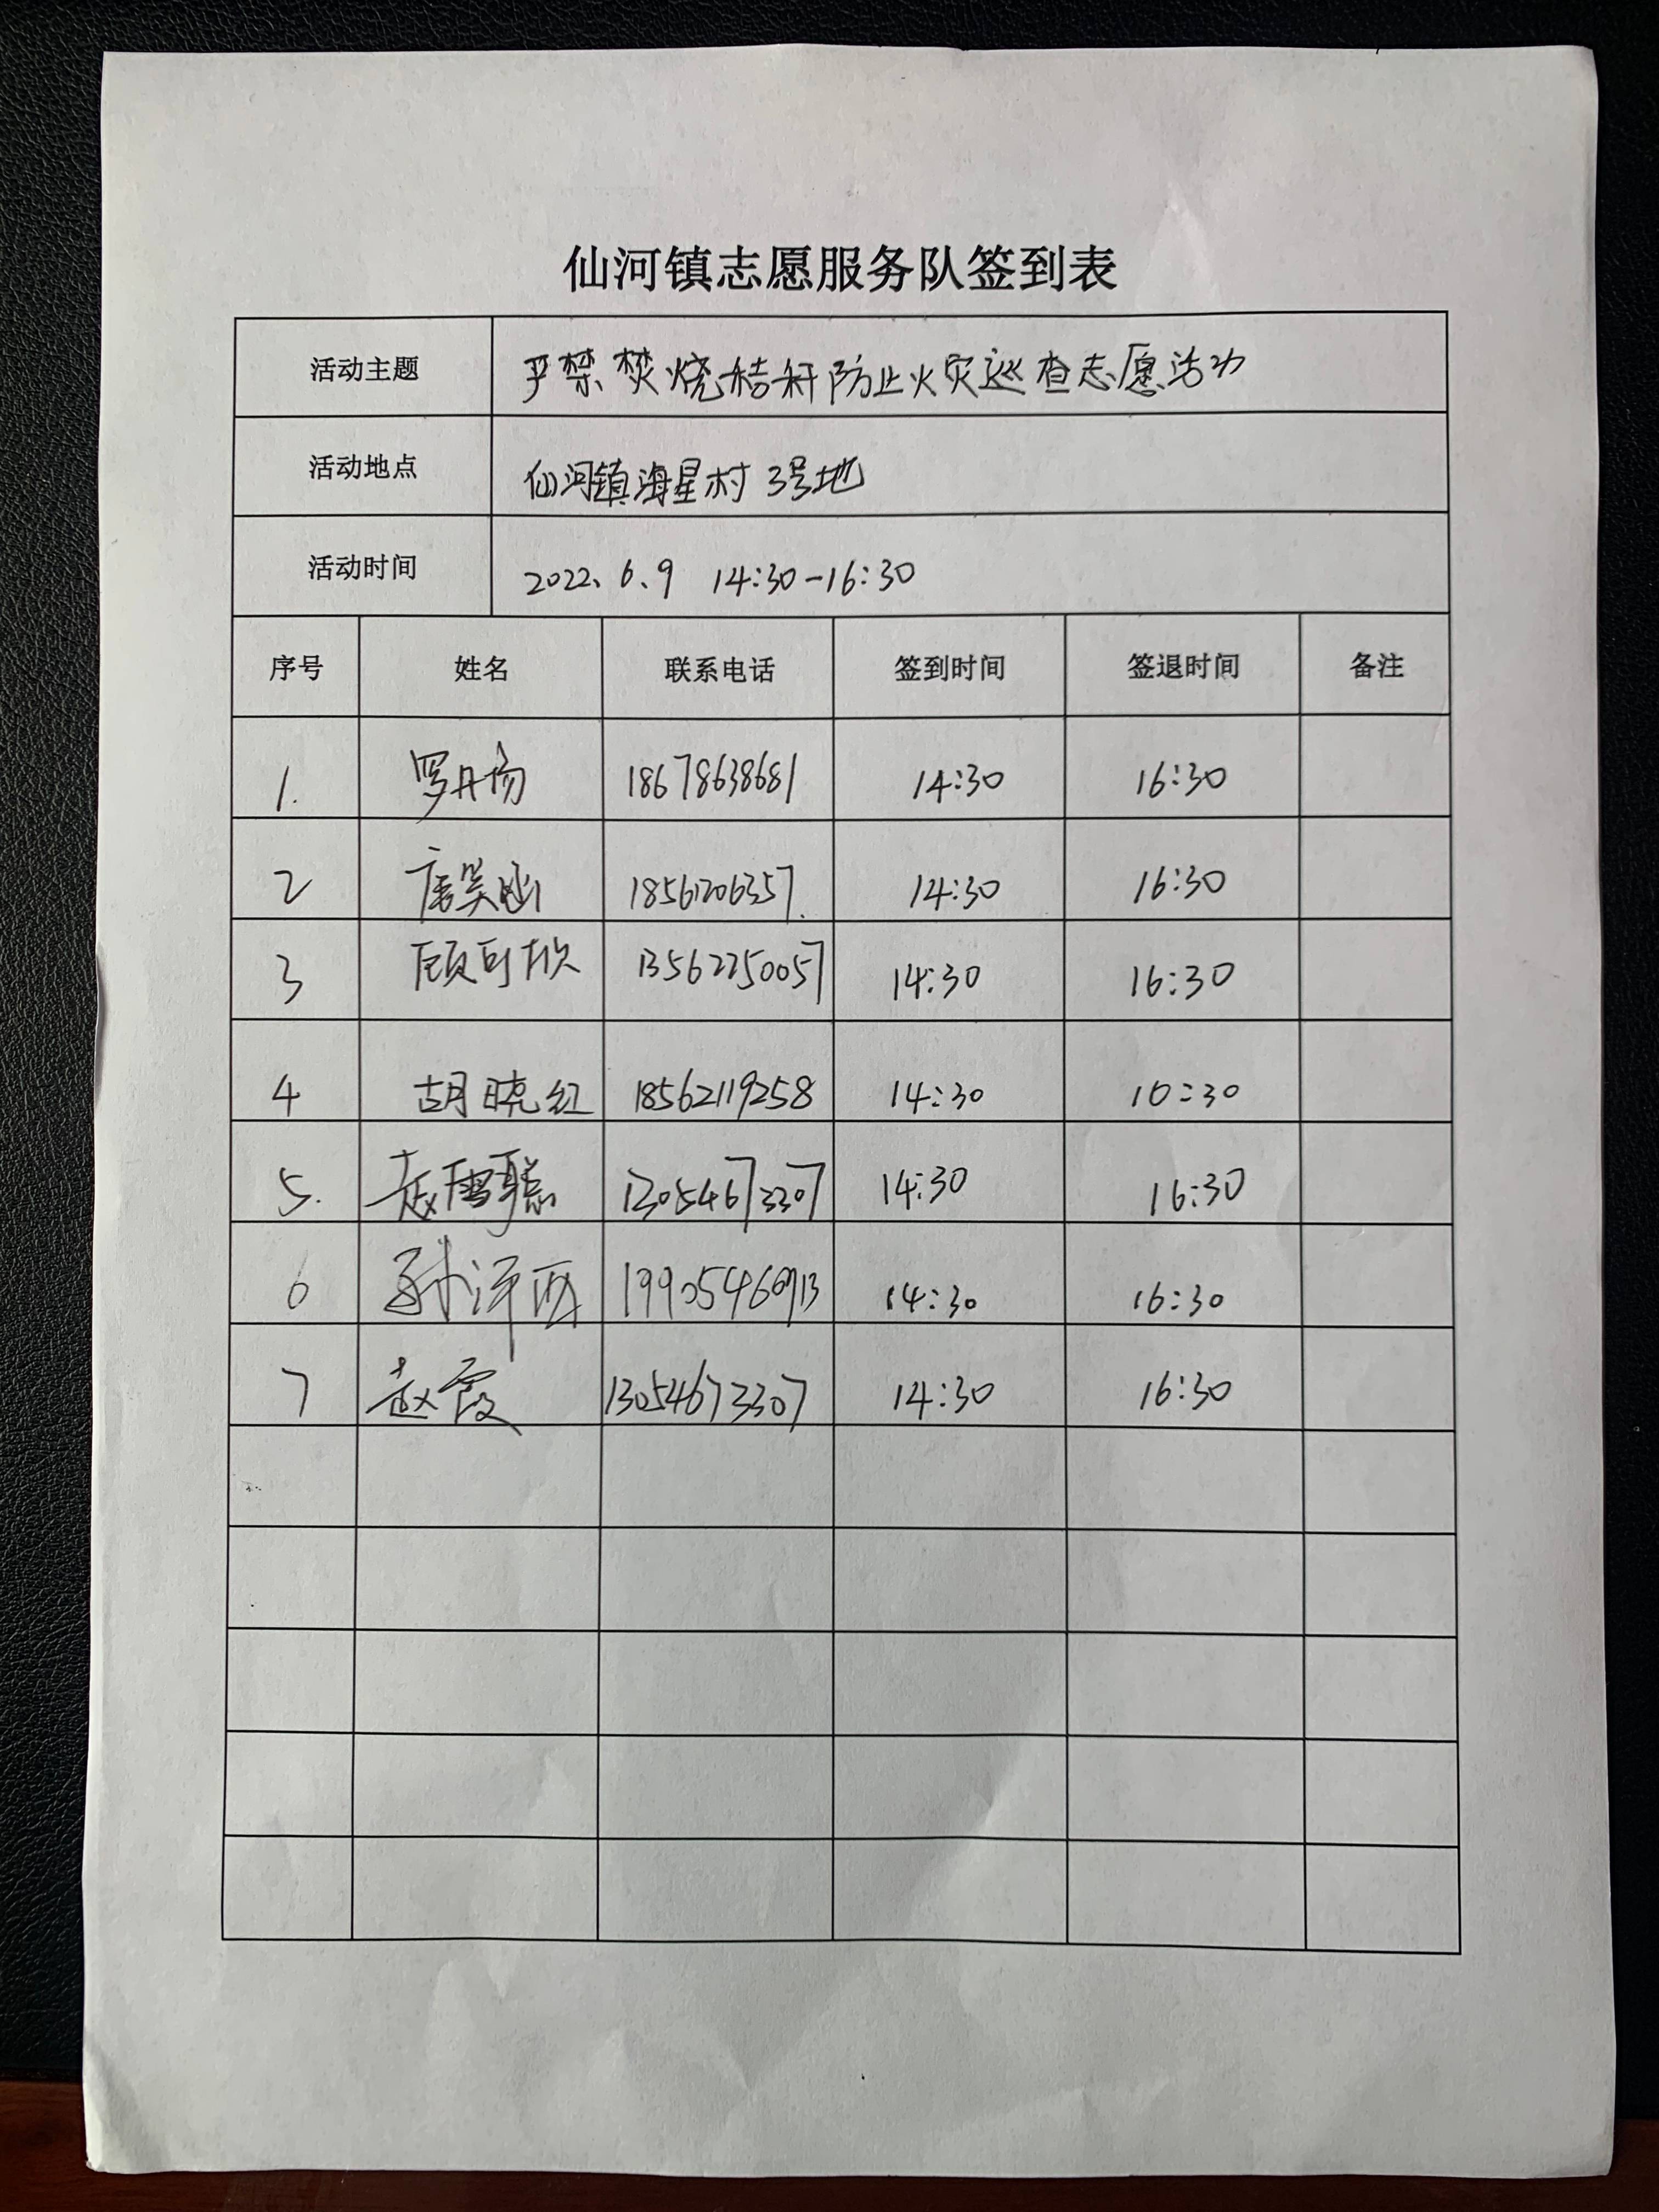 仙河镇志愿服务队签到表
活动主题 严禁焚烧秸秆防止火灾巡查志愿活动
活动地点 仙河镇海星村3号地
活动时间 2022、6、9 14:30-16:30
序号 姓名 联系电话 签到时间 签退时间 备注
1. 罗丹扬 18678638681 14:30 16:30
2 唐笑涵 18561206357. 14:30 16:30
3 顾可欣 13562250057 14:30 16:30
4 胡晓红 18562119258 14:30 10:30
5. 赵雪聪 13054673307 14:30 16:30
6 孙 14:30 16:30
7 赵霞 13054673307 14:30 16:30